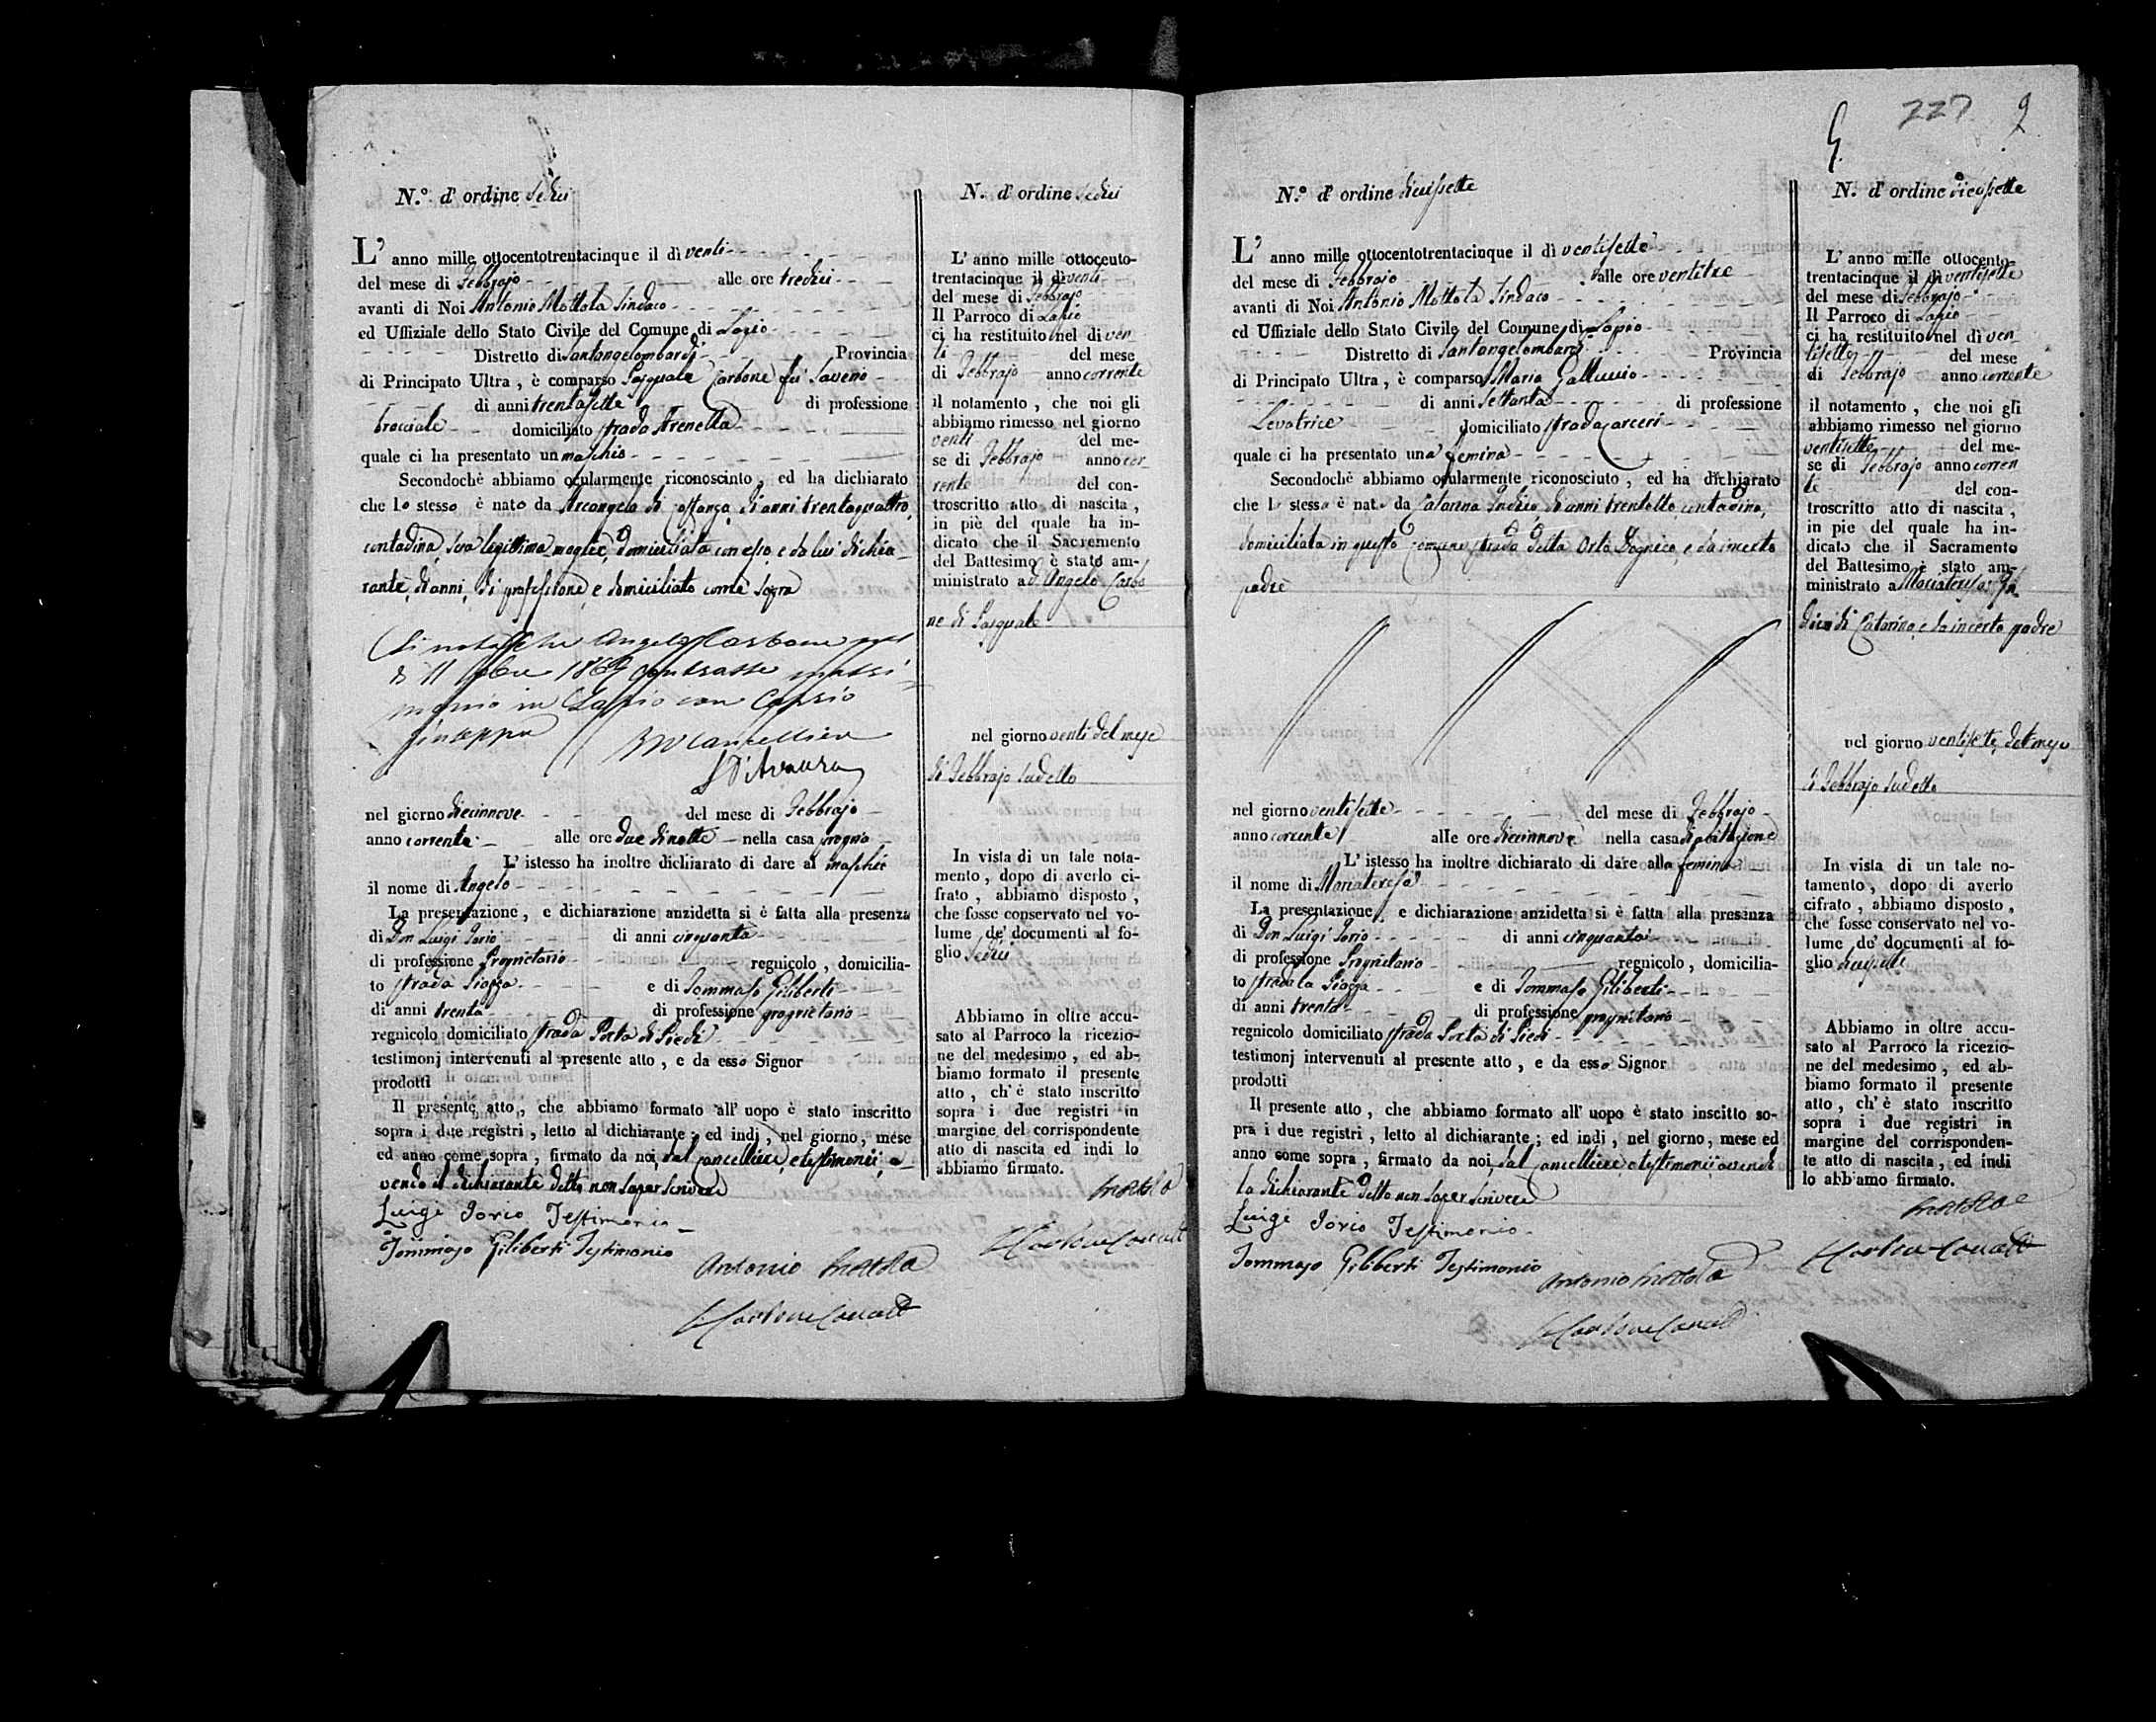 N.° d' ordine Sedici
L' anno mille ottocentotrentacinque il dì venti
del mese di Febbrajo alle ore tredici
avanti di Noi Antonio Mottola Sindaco
ed Uffiziale dello Stato Civile del Comune di Lapio
Distretto di Santangelombardi Provincia
di Principato Ultra, è comparso Pasquale Carbone fu Saverio
di anni trentasette di professione
bracciale domiciliato strada Arenella
quale ci ha presentato un maschio
Secondochè abbiamo ocularmente riconosciuto, ed ha dichiarato
che lo stesso è nato da Arcangela di Costanza di anni trentaquattro,
contadina, sua legittima moglie, domiciliata con esso, e da lui dichia-
rante, di anni, di professione, e domiciliato come sopra
Si nota che Angelo Carbone nel
dì 11 1869 contrasse matri-
monio in Lapio con Caprio
Giuseppa
Il Vice Cancelliere
nel giorno diecinnove del mese di Febbrajo
anno corrente alle ore due di notte nella casa propria
L' istesso ha inoltre dichiarato di dare al maschio
il nome di Angelo
La presentazione, e dichiarazione anzidetta si è fatta alla presenza
di Don Luigi Iorio di anni cinquanta
di professione Proprietario regnicolo, domicilia-
to strada Piazza e di Tommaso Giliberti
di anni trenta di professione proprietario
regnicolo domiciliato strada Porta di Piedi
testimonj intervenuti al presente atto, e da esso Signor
prodotti
Il presente atto, che abbiamo formato all' uopo è stato inscritto
sopra i due registri, letto al dichiarante; ed indi, nel giorno, mese
ed anno come sopra, firmato da noi, dal Cancelliere, e testimonii, a-
vendo il dichiarante detto non saper scrivere
Luigi Iorio Testimonio
Tommaso Giliberti Testimonio
Antonio Mottola
N. d' ordine Sedici
L' anno mille ottocento-
trentacinque il dì venti
del mese di Febbrajo
Il Parroco di Lapio
ci ha restituito nel dì ven
ti del mese
di Febbrajo anno corrente
il notamento, che noi gli
abbiamo rimesso nel giorno
venti del me-
se di Febbrajo anno cor
rente del con-
troscritto atto di nascita,
in piè del quale ha in-
dicato che il Sacremento
del Battesimo è stato am-
ministrato a d'Angelo Carbo
ne di Pasquale
nel giorno venti del mese
di Febbrajo sudetto
In vista di un tale nota-
mento, dopo di averlo ci-
frato, abbiamo disposto,
che fosse conservato nel vo-
lume de' documenti al fo-
glio Sedici
Abbiamo in oltre accu-
sato al Parroco la ricezio-
ne del medesimo, ed ab-
biamo formato il presente
atto, ch' è stato inscritto
sopra i due registri in
margine del corrispondente
atto di nascita ed indi lo
abbiamo firmato.
Mottola
227 9
N.° d' ordine diciasette
L' anno mille ottocentotrentacinque il dì ventisette
del mese di Febbrajo alle ore ventitre
avanti di Noi Antonio Mottola Sindaco
ed Uffiziale dello Stato Civile del Comune di Lapio
Distretto di Santangelombardi Provincia
di Principato Ultra, è comparso Maria Galluccio
di anni settanta di professione
Levatrice domiciliato strada Carceri
quale ci ha presentato una femina
Secondochè abbiamo ocularmente riconosciuto, ed ha dichiarato
che lo stessa è nata da Catarina Indizio di anni trentotto, contadina,
domiciliata in questo Comune strada detta Orto Dognico, e da incerto
padre
nel giorno ventisette del mese di Febbrajo
anno corrente alle ore diecinnove nella casa di abitazione
L' istesso ha inoltre dichiarato di dare alla femina
il nome di Mariateresa
La presentazione, e dichiarazione anzidetta si è fatta alla presenza
di Don Luigi Iorio di anni cinquanta
di professione Proprietario regnicolo, domicilia-
to strada la Piazza e di Tommaso Giliberti
di anni trenta di professione proprietario
regnicolo domiciliato strada Porta di Piedi
testimonj intervenuti al presente atto, e da esso Signor
prodotti
Il presente atto, che abbiamo formato all' uopo è stato inscitto so-
pra i due registri, letto al dichiarante; ed indi, nel giorno, mese ed
anno come sopra, firmato da noi, dal Cancelliere, e testimonii avendo
la dichiarante detto non saper scrivere
Luigi Iorio Testimonio
Tommaso Giliberti Testimonio
Antonio Mottola
N. d' ordine diciassette
L' anno mille ottocento-
trentacinque il dì ventisette
del mese di Febbrajo
Il Parroco di Lapio
ci ha restituito nel dì ven
tisette del mese
di Febbrajo anno corrente
il notamento, che noi gli
abbiamo rimesso nel giorno
ventisette del me-
se di Febbrajo anno corren
te del con-
troscritto atto di nascita,
in pie del quale ha in-
dicato che il Sacramento
del Battesimo è stato am-
ministrato a Mariateresa In
dizio di Catarina, e da incerto padre
nel giorno ventisette del mese
di Febbrajo sudetto
In vista di un tale no-
tamento, dopo di averlo
cifrato, abbiamo disposto,
che fosse conservato nel vo-
lume de' documenti al fo-
glio diciasette
Abbiamo in oltre accu-
sato al Parroco la ricezio-
ne del medesimo, ed ab-
biamo formato il presente
atto, ch' è stato inscritto
sopra i due registri in
margine del corrisponden-
te atto di nascita, ed indi
lo abbiamo firmato.
Mottola